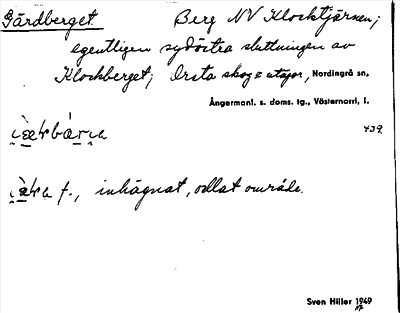 Gärdberget. Berg NV Klocktjärnen;
egentligen sydöstra sluttningen av
Klockberget; Orsta skog & utägor, Nordingrå sn,
Ångermanl. s. doms. tg., Västernorrl. l.
439
f., inhägnat, odlat område.
Sven Hiller 1949